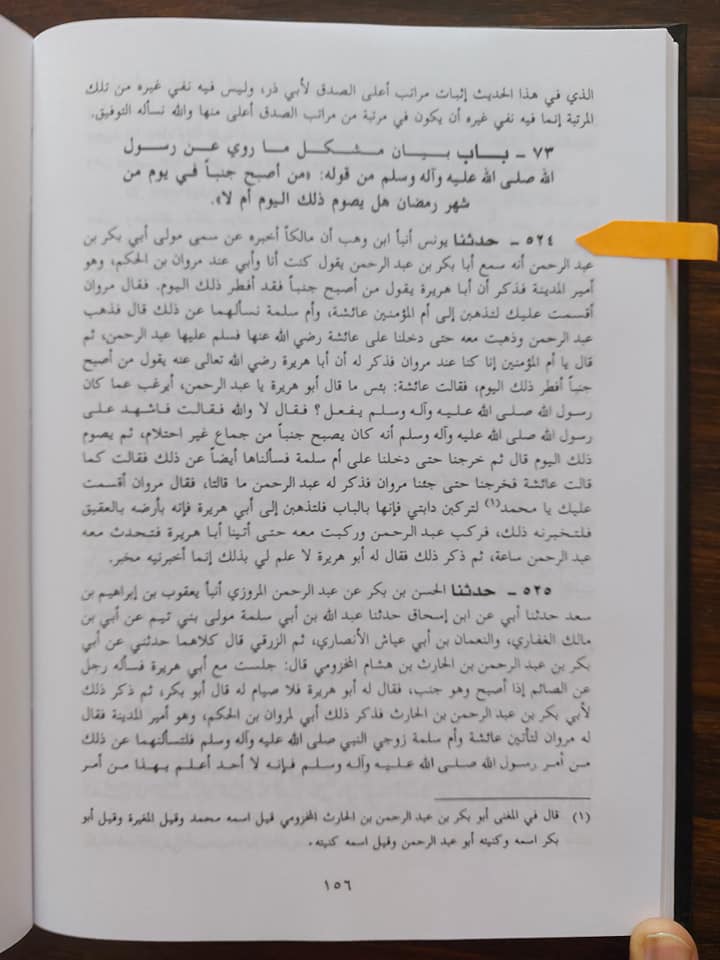 الذي في هذا الحديث إثبات مراتب أعلى الصدق لأبي ذر، وليس فيه نفي غيره من تلك
المرتبة إنما فيه نفي غيره أن يكون في مرتبة من مراتب الصدق أعلى منها والله نسأله التوفيق.
٧٣ - بـاب بـيـان مـشـكـل مـا روي عـن رسـول
الله صلى الله عليه وآله وسلم من قوله: «من أصبح جنباً في يوم من
شهر رمضان هل يصوم ذلك اليوم أم لا».
٥٢٤ - حدثنا يونس أنبأ ابن وهب أن مالكاً أخبره عن سمى مولى أبي بكر بن
عبد الرحمن أنه سمع أبا بكر بن عبد الرحمن يقول كنت أنا وأبي عند مروان بن الحكم، وهو
أمير المدينة فذكر أن أبا هريرة يقول من أصبح جنباً فقد أفطر ذلك اليوم. فقال مروان
أقسمت عليك لتذهبن إلى أم المؤمنين عائشة، وأم سلمة نسألهما عن ذلك قال فذهب
عبد الرحمن وذهبت معه حتى دخلنا على عائشة رضي الله عنها فسلم عليها عبد الرحمن، ثم
قال يا أم المؤمنين إنا كنا عند مروان فذكر له أن أبا هريرة رضي الله تعالى عنه يقول من أصبح
جنباً أفطر ذلك اليوم، فقالت عائشة: بئس ما قال أبو هريرة يا عبد الرحمن، أيرغب عما كان
رسول الله صلى الله عليه وآله وسلم يفعل؟ فقال لا والله فقالت فاشهد على
رسول الله صلى الله عليه وآله وسلم أنه كان يصبح جنباً من جماع غير احتلام، ثم يصوم
ذلك اليوم قال ثم خرجنا حتى دخلنا على أم سلمة فسألناها أيضاً عن ذلك فقالت كما
قالت عائشة فخرجنا حتى جئنا مروان فذكر له عبد الرحمن ما قالتا، فقال مروان أقسمت
عليك يا محمد(١) لتركبن دابتي فإنها بالباب فلتذهبن إلى أبي هريرة فإنه بأرضه بالعقيق
فلتخبرنه ذلك، فركب عبد الرحمن وركبت معه حتى أتينا أبا هريرة فتحدث معه
عبد الرحمن ساعة، ثم ذكر ذلك فقال له أبو هريرة لا علم لي بذلك إنما أخبرنيه مخبر.
٥٢٥ - حدثنا الحسن بن بكر عن عبد الرحمن المروزي أنبأ يعقوب بن إبراهيم بن
سعد حدثنا أبي عن ابن إسحاق حدثنا عبد الله بن أبي سلمة مولى بني تيم عن أبي بن
مالك الغفاري، والنعمان بن أبي عياش الأنصاري، ثم الزرقي قال كلاهما حدثني عن أبي
بكر بن عبد الرحمن بن الحارث بن هشام المخزومي قال: جلست مع أبي هريرة فسأله رجل
عن الصائم إذا أصبح وهو جنب، فقال له أبو هريرة فلا صيام له قال أبو بكر، ثم ذكر ذلك
لأبي بكر بن عبد الرحمن بن الحارث فذكر ذلك أبي لمروان بن الحكم، وهو أمير المدينة فقال
له مروان لتأتين عائشة وأم سلمة زوجي النبي صلى الله عليه وآله وسلم فلتسألنهما عن ذلك
من أمر رسول الله صلى الله عليه وآله وسلم فإنه لا أحد أعلم بهذا من أمر
(١) قال في المغنى أبو بكر بن عبد الرحمن بن الحارث المخزومي قيل اسمه محمد وقيل المغيرة وقيل أبو
بكر اسمه وكنيته أبو عبد الرحمن وقيل اسمه كنيته.
١٥٦